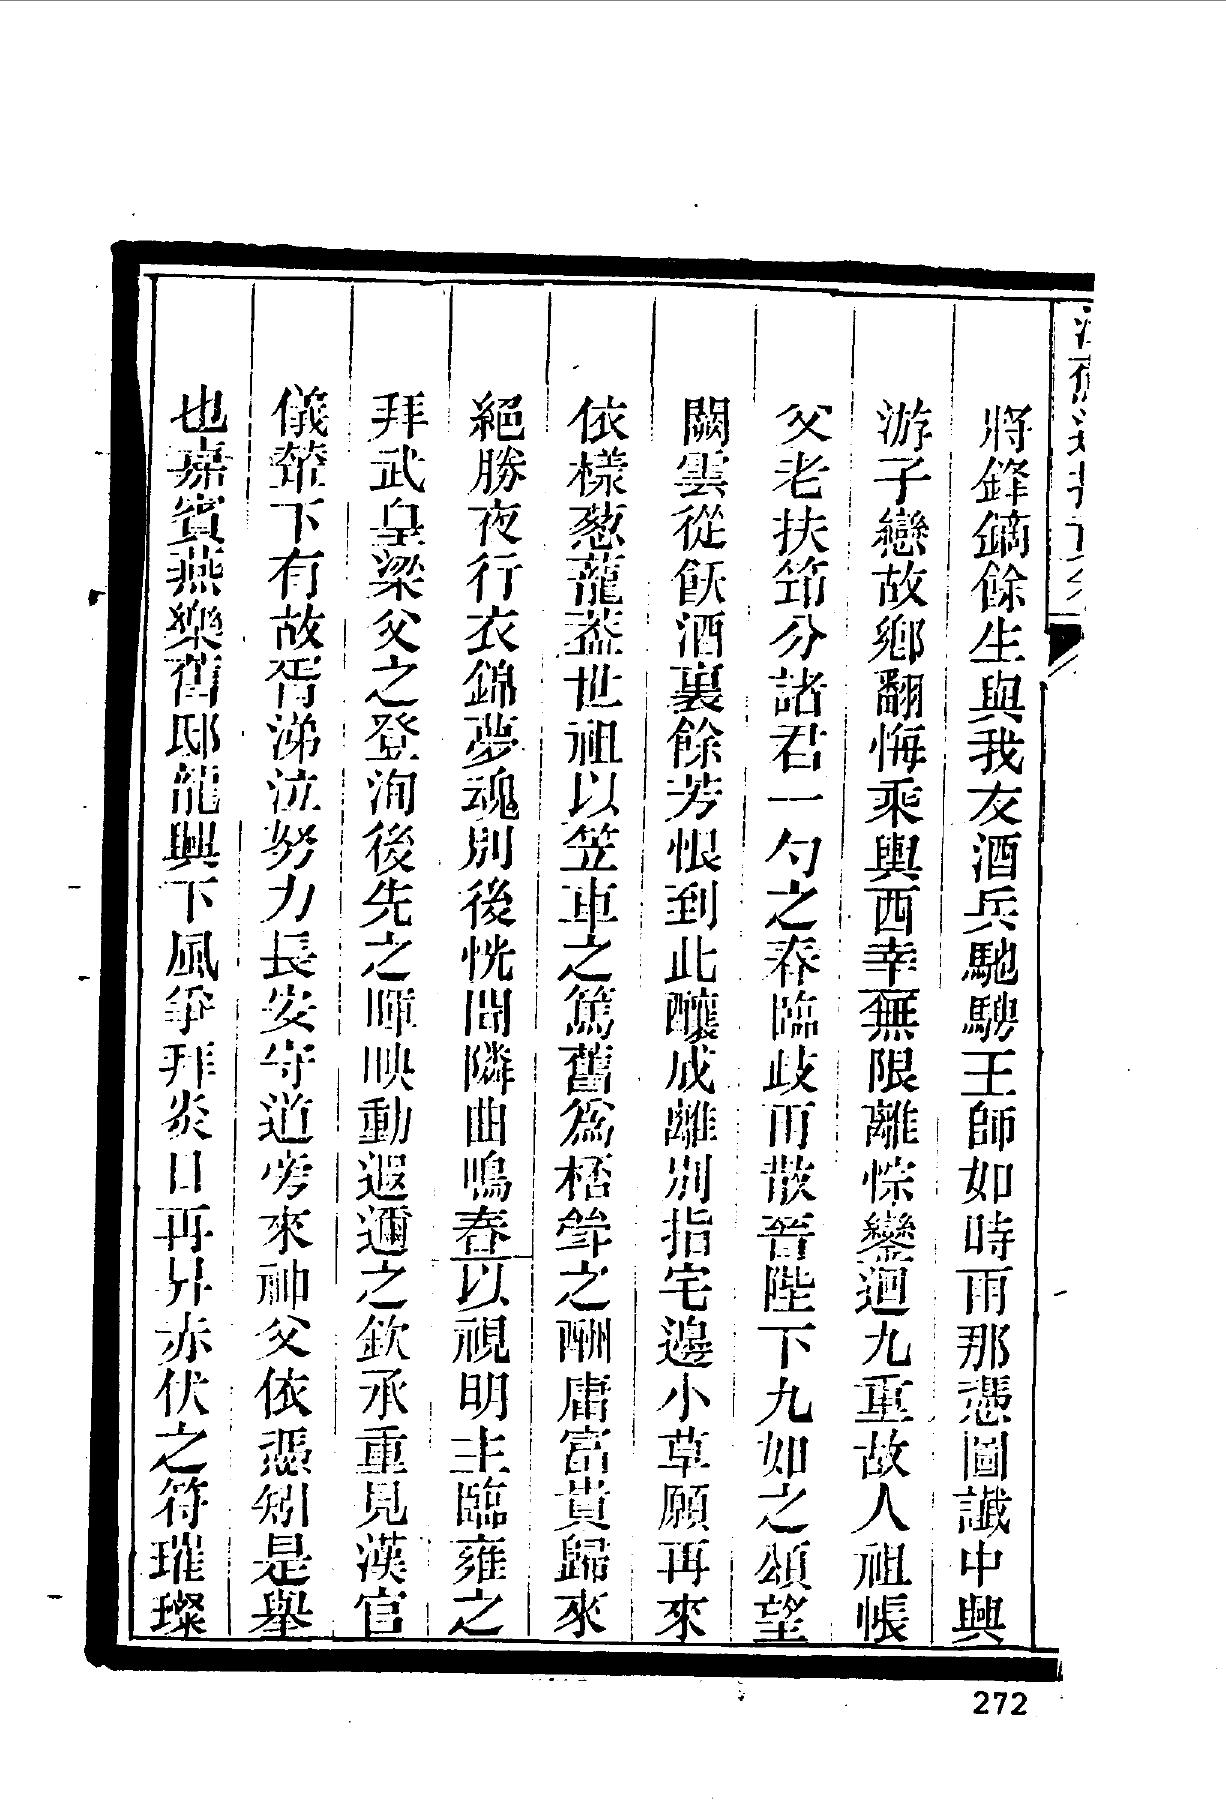 將鋒鏑餘生與我友酒兵馳騁王師如時雨那憑圖讖中興
游子戀故鄉翻悔乘輿西幸無限離悰鑾迴九重故人祖帳
父老扶筇分諸君一勺之春臨歧雨散晉陛下九如之頌望
闕雲從飫酒裏餘芳恨到此釀成離別指宅邊小草願再來
依樣葱蘢蓋世祖以笠車之篤舊爲桮斝之酬庸富貴歸來
絕勝夜行衣錦夢魂別後恍聞隣曲鳴舂以視明主臨雍之
拜武皇梁父之登洵後先之暉映動遐邇之欽承重見漢官
儀輦下有故胥涕泣努力長安守道旁來神父依憑矧是舉
也嘉賓燕樂舊邸龍興下風爭拜炎日再昇赤伏之符璀璨
272